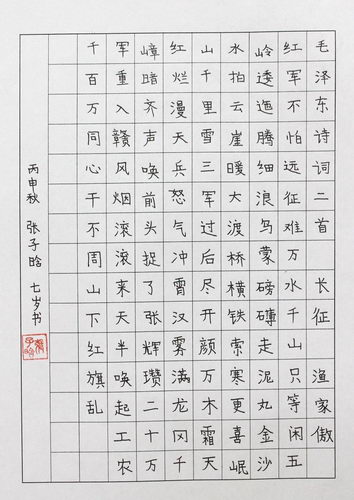 毛泽东诗词二首 长征 渔家傲
红军不怕远征难万水千山只等闲五
岭逶迤腾细浪乌蒙磅礴走泥丸金沙
水拍云崖暖大渡桥横铁索寒更喜岷
山千里雪三军过后尽开颜万木霜天
红烂漫天兵怒气冲霄汉雾满龙冈千
嶂暗齐声唤前头捉了张辉瓒二十万
军重入赣风烟滚滚来天半唤起工农
千百万同心干不周山下红旗乱
丙申秋 张子晗 七岁书